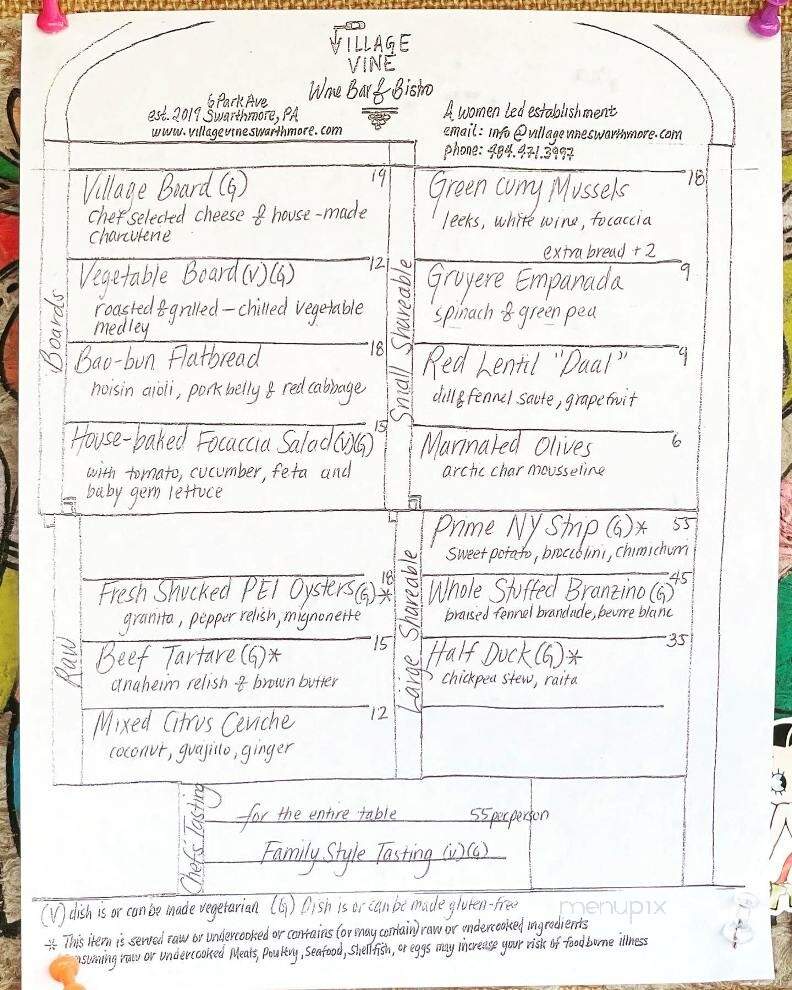 VILLAGE
VINE
Wine Bar & Bistro
6 Park Ave
est. 2017 Swarthmore, PA
www.villagevineswarthmore.com
A women led establishment
email: info@villagevineswarthmore.com
phone: 484.471.3997
Boards
Village Board (G) 19
chef selected cheese & house-made
charcuterie
Vegetable Board (V)(G) 12
roasted & grilled - chilled vegetable
medley
Bao-bun Flatbread 18
hoisin aioli, pork belly & red cabbage
House-baked Focaccia Salad (V)(G) 15
with tomato, cucumber, feta and
baby gem lettuce
Small Shareable
Green Curry Mussels 18
leeks, white wine, focaccia
extra bread +2
Gruyere Empanada 9
spinach & green pea
Red Lentil "Daal" 9
dill & fennel saute, grapefruit
Marinated Olives 6
arctic char mousseline
Raw
Fresh Shucked PEI Oysters (G)* 18
granita, pepper relish, mignonette
Beef Tartare (G)* 15
anaheim relish & brown butter
Mixed Citrus Ceviche 12
coconut, guajillo, ginger
Large Shareable
Prime NY Strip (G)* 55
sweet potato, broccolini, chimichurri
Whole Stuffed Branzino (G) 45
braised fennel brandade, beurre blanc
Half Duck (G)* 35
chickpea stew, raita
Chefs Tasting
for the entire table 55 per person
Family Style Tasting (V)(G)
(V) dish is or can be made vegetarian (G) Dish is or can be made gluten-free
* This item is served raw or undercooked or contains (or may contain) raw or undercooked ingredients
consuming raw or undercooked Meats, Poultry, Seafood, Shellfish, or eggs may increase your risk of foodborne illness
menupix